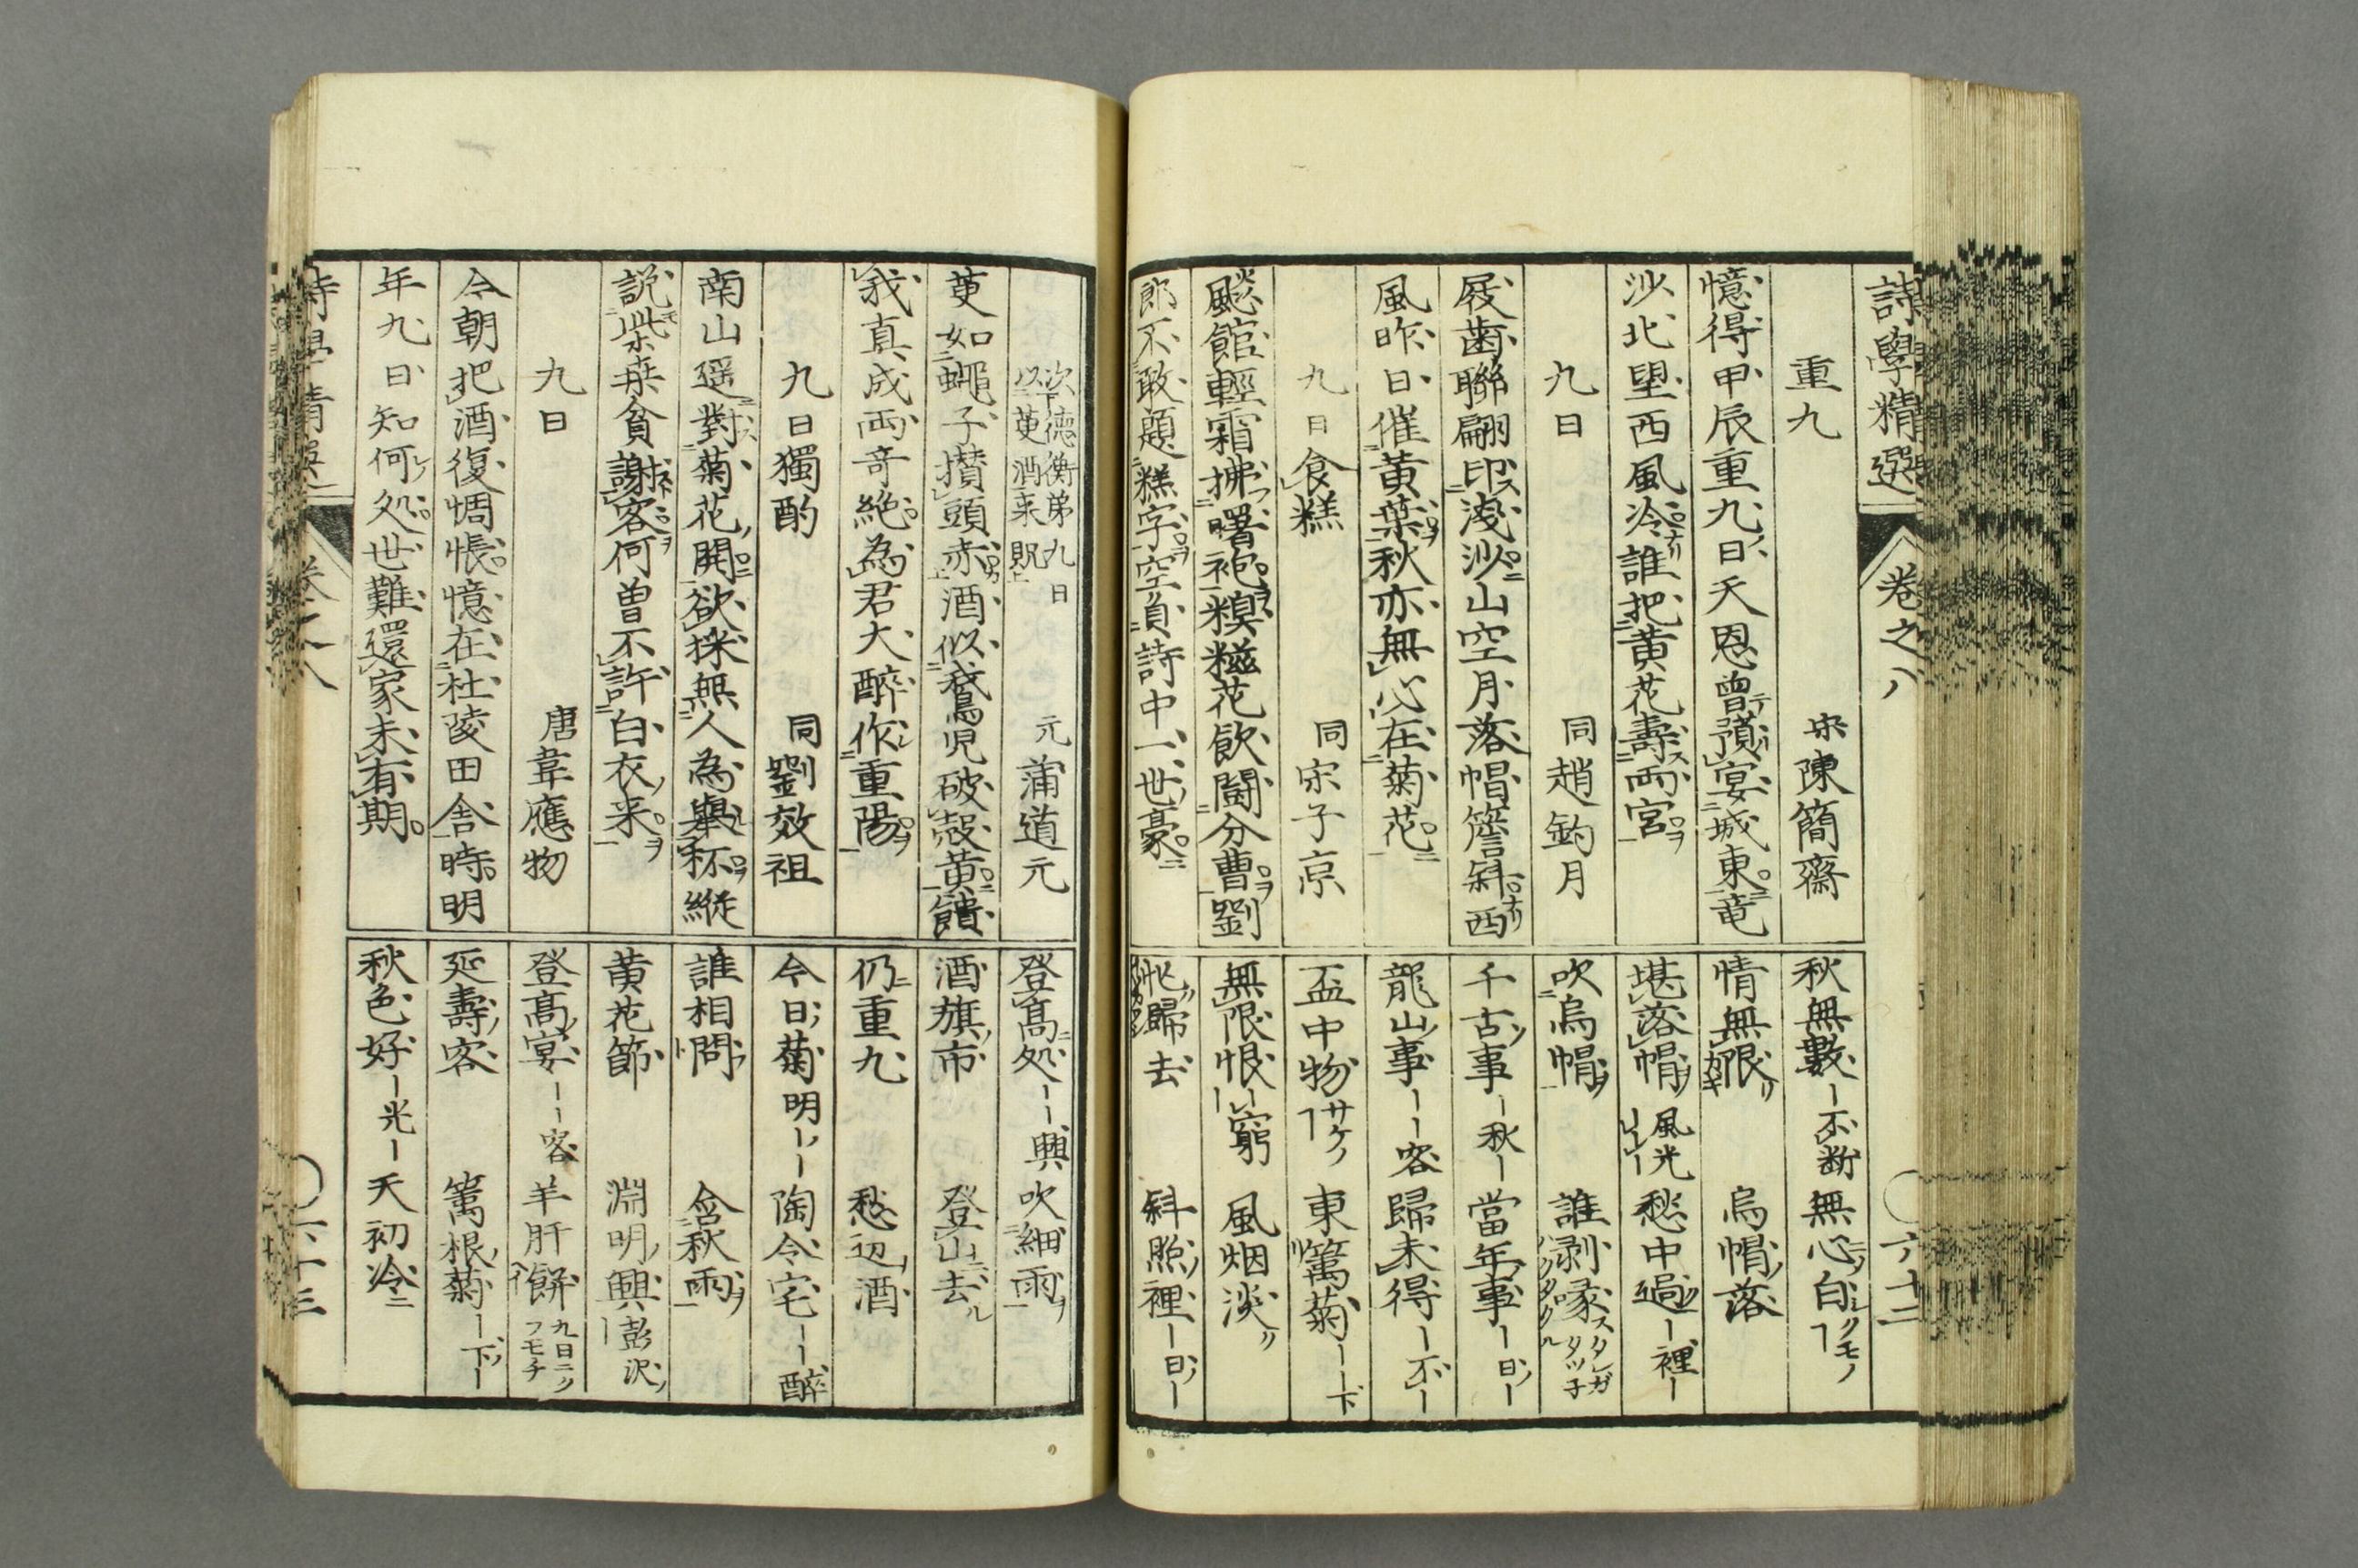 詩學精選 巻之八 六十二
重九 宋陳簡齋
憶得甲辰重九日天恩曽預宴城東竜
沙北望西風冷誰把黄花壽両宮
九日 同趙釣月
屐歯聯翩印浅沙山空月落帽簷斜西
風昨日催黄葉秋亦無心在菊花
九日食糕 同宋子京
飈館輕霜拂曙袍糗糍花飲闘分曹劉
郎不敢題糕字空負詩中一世豪
秋無數ー不断 無心白
情無限 烏帽落
堪落帽 風光ー 愁中過ー裡ー
吹烏帽 誰剥啄
千古事ー秋ー 當年事ー日ー
龍山事ーー客 歸未得ー不ー
盃中物 サケノ 東篱菊ーー下
無限恨ー窮 風烟淡
忙歸去 斜照裡ー日ー
次德衡弟九日
以萸酒来貺 元蒲道元
萸如蠅子攅頭赤酒似鵞児破殻黄饋
我真成両奇絶為君大醉作重陽
九日獨酌 同劉效祖
南山遥對菊花開欲採無人為擧杯縦
説柴桒貧謝客何曽不許白衣来
九日 唐韋應物
今朝把酒復惆悵憶在杜陵田舎時明
年九日知何処世難還家未有期
登髙処ーー興 吹細雨
酒旗市 登山去
仍重九 愁辺酒
今日菊 明ーー 陶令宅ーー醉
誰相問 含秋雨
黄花節 淵明興 彭沢
登髙宴ーー客 羊肝餅 九日ニクフモチ
延壽客 篱根菊ー下ー
秋色好ー光ー 天初冷
詩學精選 巻之八 六十三